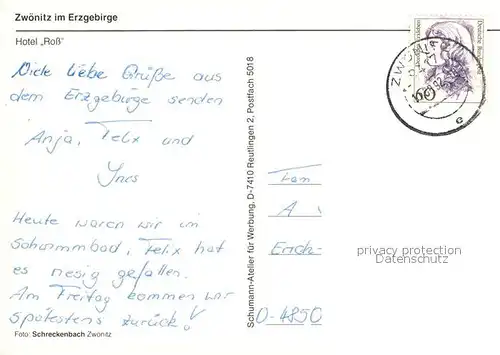 Zwönitz im Erzgebirge
Hotel „Roß"
Viele liebe Grüße aus
dem Erzgebirge senden
Anja, Felix und
Ynes
Heute waren wir im
Schwimmbad, Felix hat
es riesig gefallen.
Am Freitag kommen wir
spätestens zurück!
Foto: Schreckenbach Zwönitz
Schumann-Atelier für Werbung, D-7410 Reutlingen 2, Postfach 5018
Deutsche Bundespost
Fam
A
Erich-
D-4850
privacy protection
Datenschutz